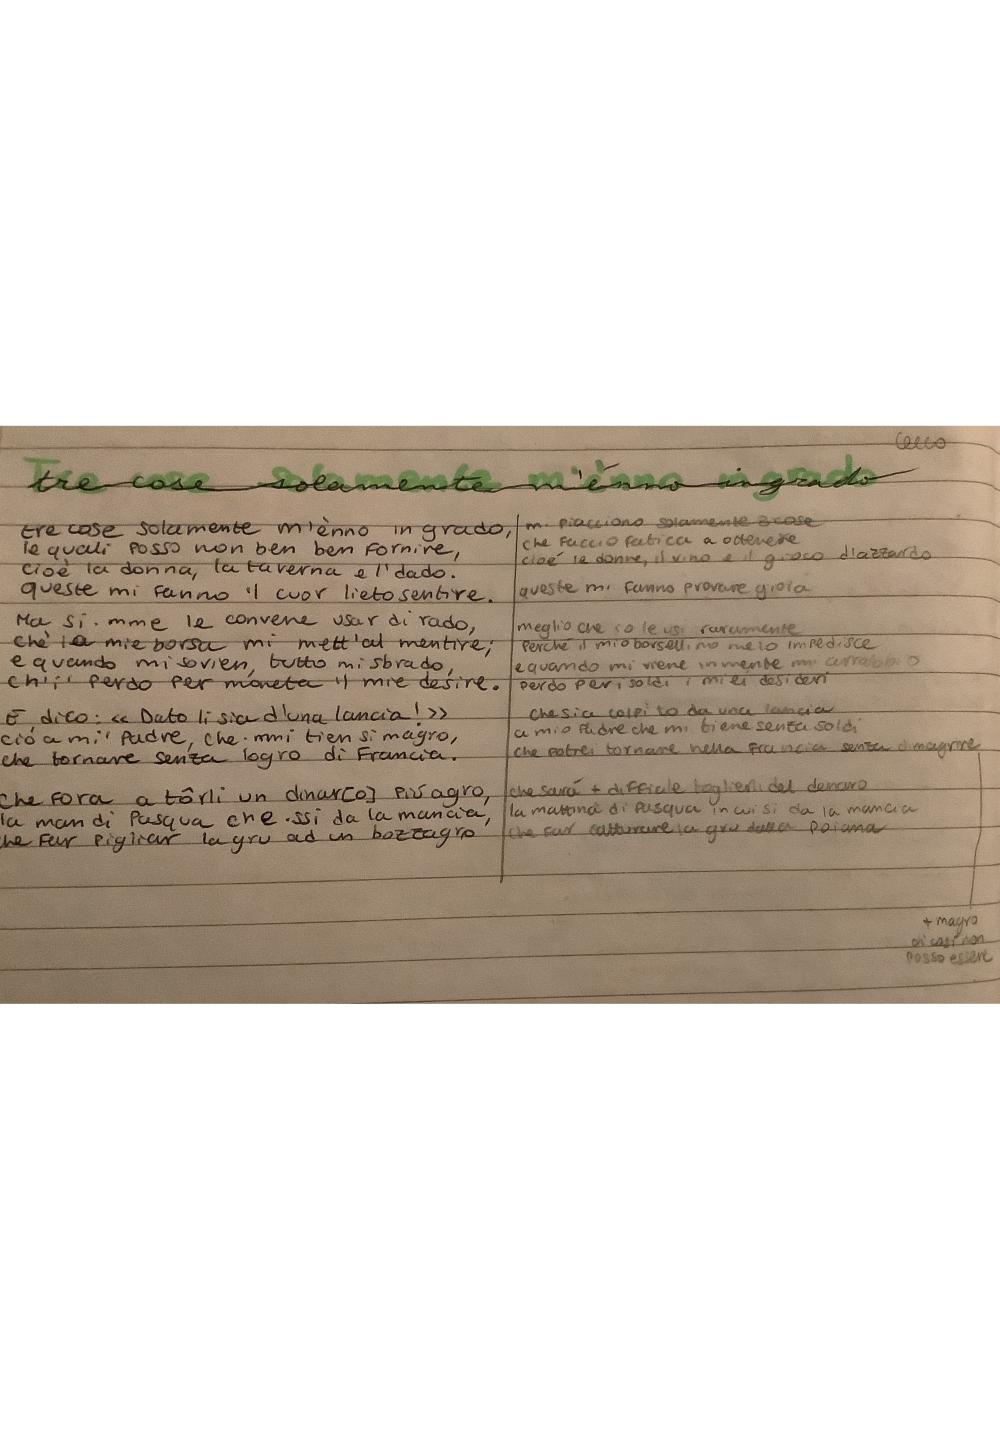 Cecco
tre cose solamente m'ènno in grado
tre cose solamente m'ènno in grado,
le quali posso non ben ben fornire,
cioè la donna, la taverna e l'dado.
queste mi fanno il cuor lieto sentire.
Ma sì·mme le convene usar di rado,
ché la mie borsa mi mett'al mentire;
e quando mi sovien, tutto mi sbrado,
ch'i' perdo per moneta il mie desire.
E dico: «Dato li sia d'una lancia!»
ciò a mi' padre, che·mmi tien sì magro,
che tornare senza logro di Francia.
che fora a tôrli un dinar[o] più agro,
la man di Pasqua che·ssi da la mancia,
che far pigliar la gru ad un bozzagro
mi piacciono solamente 3 cose
che faccio fatica a ottenere
cioé le donne, il vino e il gioco d'azzardo
queste mi fanno provare gioia
meglio che io le usi raramente
perché il mio borsellino me lo impedisce
e quando mi viene in mente mi arrabbio
perdo per i soldi i miei desideri
che sia colpito da una lancia
a mio Padre che mi tiene senza soldi
che potrei tornare nella Francia senza dimagrire
che sará + difficile toglierli del denaro
la mattina di Pasqua in cui si da la mancia
che far catturare la gru dalla poiana
+ magro
di così non
posso essere